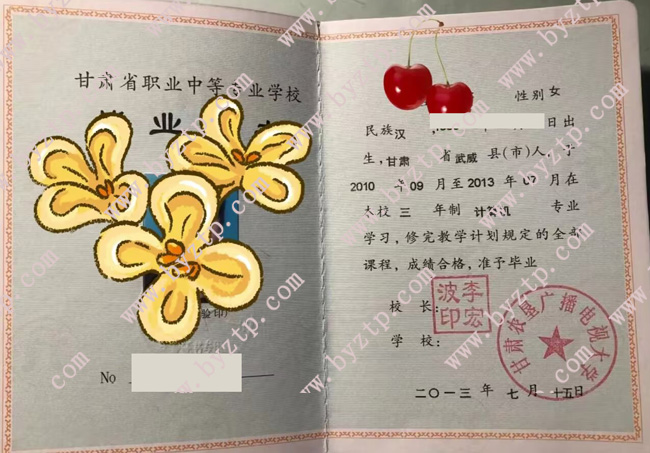 甘肃省职业中等专业学校
业
No
性别 女
民族 汉 日出
生，甘肃 省 武威 县(市)人，于
2010 年 09 月至 2013 年 07 月在
本校 三 年制 计算机 专业
学习，修完教学计划规定的全部
课程，成绩合格，准予毕业
校 长：
李宏波印
学 校：
甘肃农垦广播电视大学
二〇一三 年 七 月 十五日
www.byztp.com